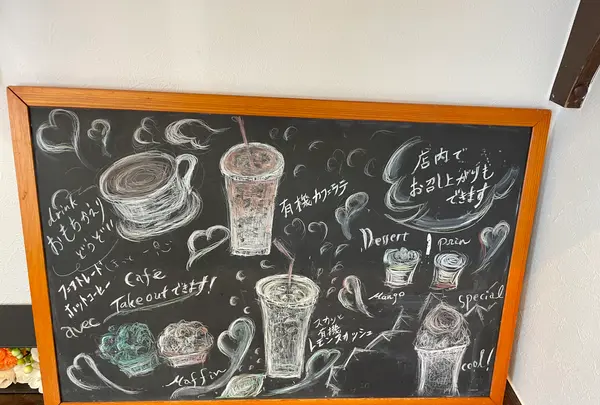 drink
おもちかえり
どうぞ!!
フェアトレード
ホットコーヒー
ほっと
Cafe
Take outできます!
avec
Maffin
有機カフェラテ
スカッと
有機
レモンスカッシュ
店内で
お召し上がりも
できます
Dessert
prin
Mango
special
cool!